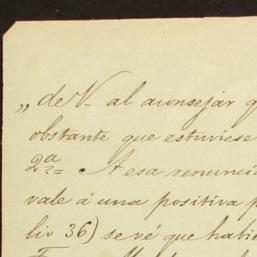 „ de V— al aconsejár q
obstante que estuviese
2ª= A esa renuncia
vale á una positiva p
lio 36) se vé que habie